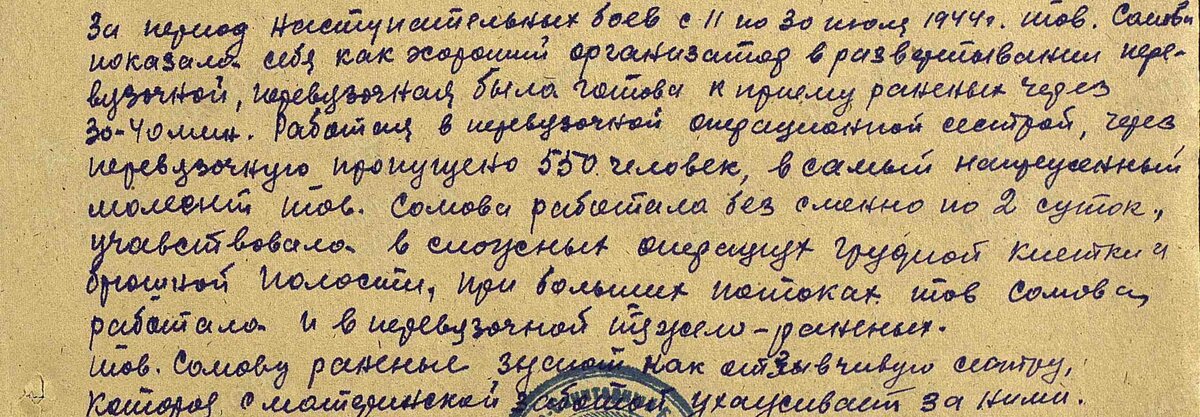 За период наступательных боев с 11 по 30 июля 1944г. тов. Сомова
показала себя как хороший организатор в развертывании пере-
вузочной, перевузочная была готова к приему раненых через
30-40 мин. Работая в перевузочной операционной сестрой, через
перевязочную пропущено 550 человек, в самый напряженный
момент тов. Сомова работала без сменно по 2 суток,
учавствовала в сложных операциях грудной клетки и
брюшной полости, при больших потоках тов Сомова,
работала и в перевязочной тяжело-раненых.
тов. Сомову раненые знают как отзывчивую сестру,
которая с материнской заботой ухаживает за ними.